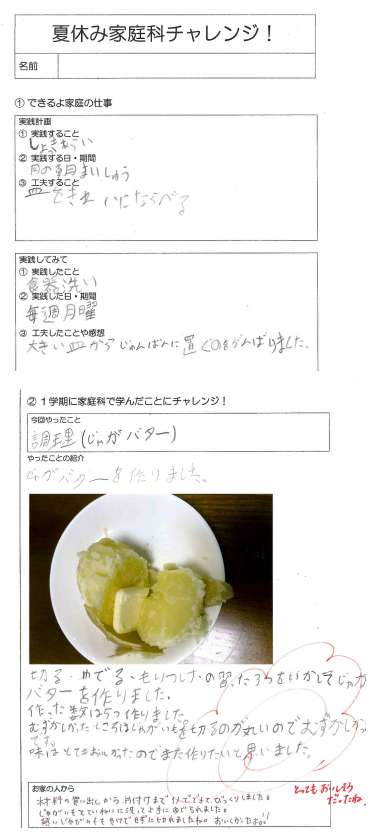 夏休み家庭科チャレンジ！
名前
① できるよ家庭の仕事
実践計画
① 実践すること
しょっきあらい
② 実践する日・期間
月の朝まいしゅう
③ 工夫すること
皿をきれいにならべる
実践してみて
① 実践したこと
食器洗い
② 実践した日・期間
毎週月曜
③ 工夫したことや感想
大きい皿からじゅんばんに置くのをがんばりました。
② １学期に家庭科で学んだことにチャレンジ！
今回やったこと
調理(じゃがバター)
やったことの紹介
じゃがバターを作りました。
切る・ゆでる・もりつけの習った3つをいかしてじゃが
バターを作りました。
作った数は5つ作りました
むずかしかったところはじゃがいもを切るのが丸いのでむずかしかっ
たです。
味はとてもおいしかったのでまた作りたいと思いました。
とってもおいしそう
だったね。
お家の人から
材料の買い出しから片付けまで1人でできてびっくりしました。
じゃがいももていねいに洗って上手にゆでられました。
おいしかったよ。